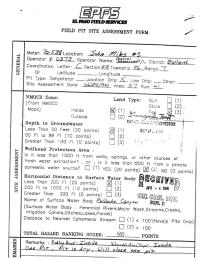 EPFS
EL PASO FIELD SERVICES
FIELD PIT SITE ASSESSMENT FORM
GENERAL
Meter: 70-538 Location: John Mills #1
Operator #: 0373 Operator Name: P/L District: Ballard
Coordinates: Letter: C Section 28 Township: 26 Range: 7
Or Latitude Longitude
Pit Type: Dehydrator Location Drip: X Line Drip: Other:
Site Assessment Date: Area: Run:
SITE ASSESSMENT
NMOCD Zone: Land Type: BLM (1)
(From NMOCD State (2)
Maps) Inside (1) Fee (3)
Outside (2) Indian
Depth to Groundwater
Less Than 50 Feet (20 points) (1)
50 Ft to 99 Ft (10 points) (2)
Greater Than 100 Ft (0 points) (3)
Wellhead Protection Area:
Is it less than 1000 ft from wells, springs, or other sources of
fresh water extraction? , or ; Is it less than 200 ft from a private
domestic water source? (1) YES (20 points) (2) NO (0 points)
Horizontal Distance to Surface Water Body
Less Than 200 Ft (20 points) (1)
200 Ft to 1000 Ft (10 points) (2)
Greater Than 1000 Ft (0 points) (3)
Name of Surface Water Body Palluche Canyon
(Surface Water Body : Perennial Rivers,Major Wash,Streams,Creeks,
Irrigation Canals,Ditches,Lakes,Ponds)
Distance to Nearest Ephemeral Stream (1) < 100'(Navajo Pits Only)
(2) > 100'
TOTAL HAZARD RANKING SCORE: POINTS
REMARKS
Remarks : Inside Inside
Pit. Pit is dry. Will close pit
RECEIVED
OIL CON. DIV.